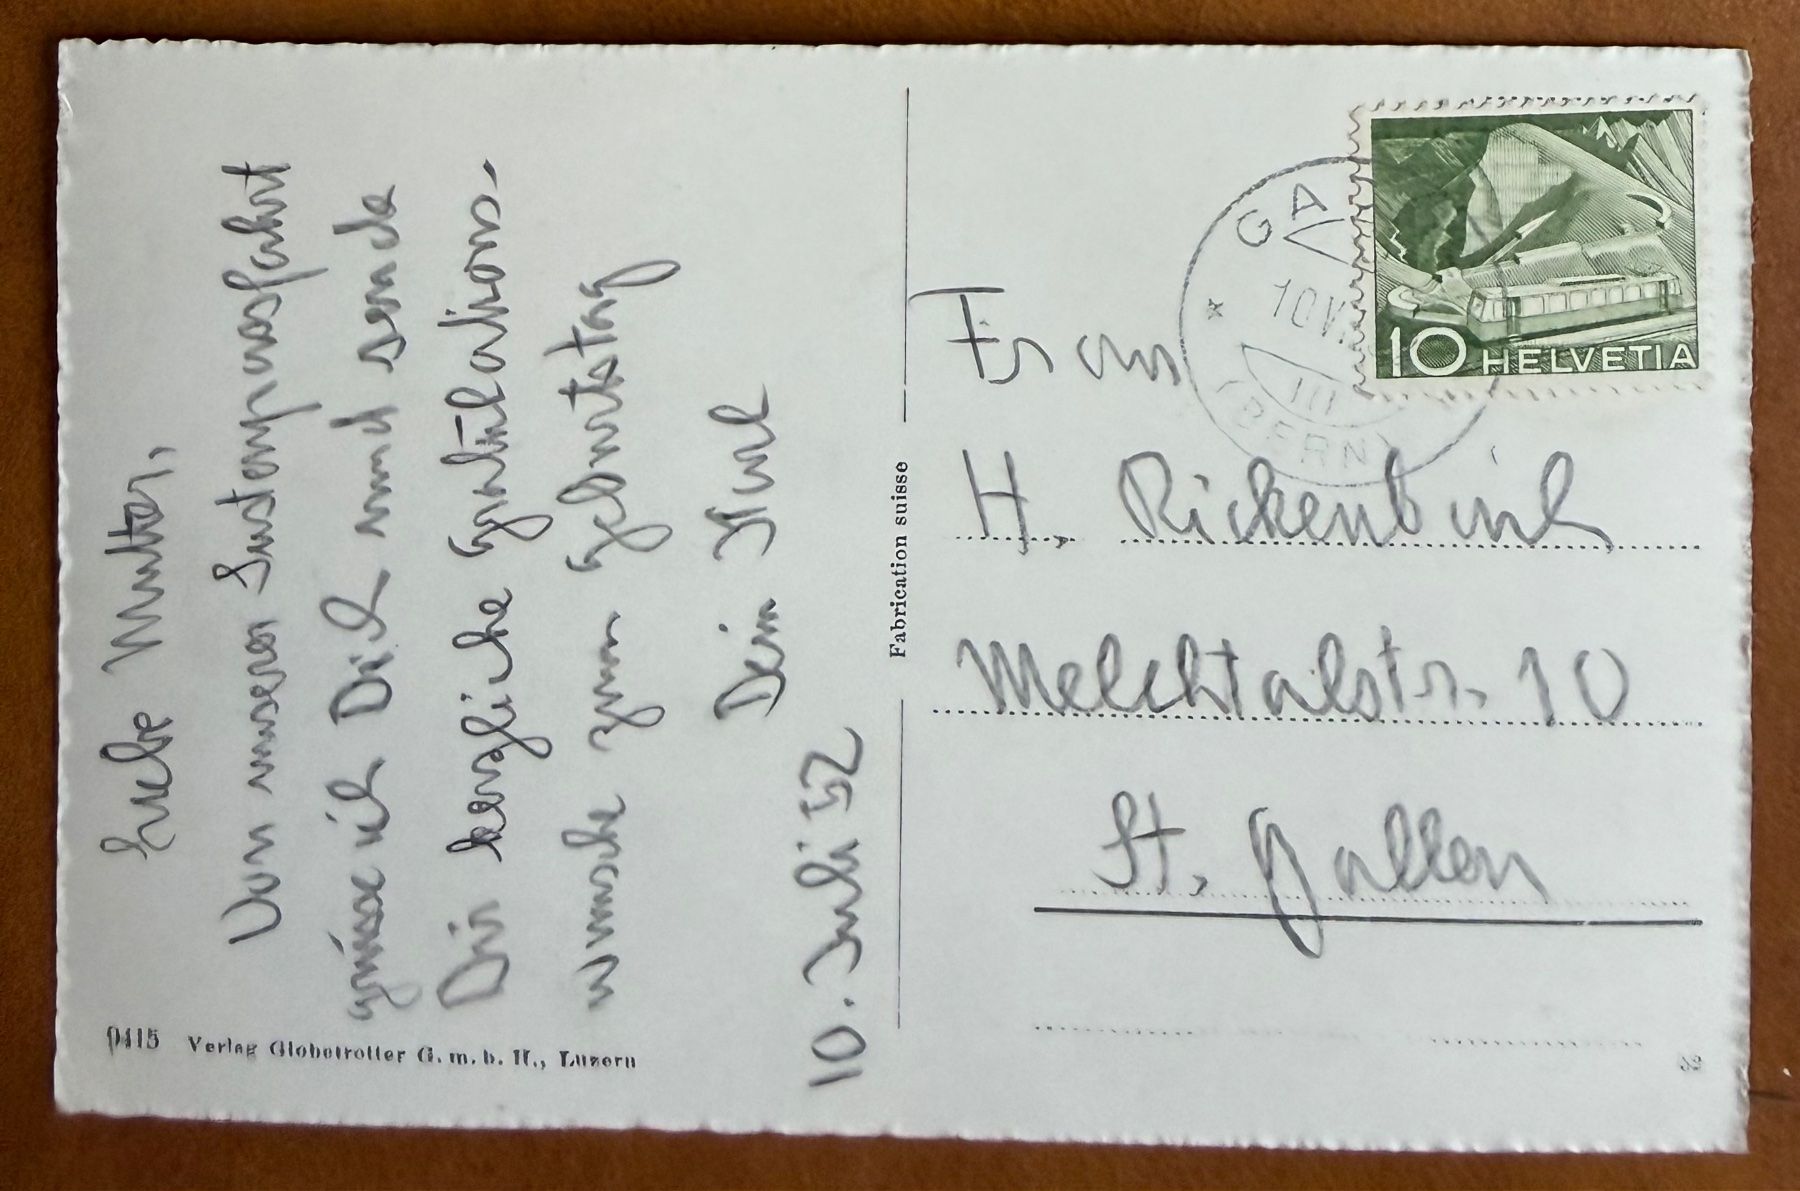 Liebe Mutter,
Von unserer Sustenpassfahrt
grüsse ich Dich und sende
Dir herzliche Gratulations-
wünsche zum Geburtstag
Dein Karl
10. Juli 52
0415 Verlag Globetrotter G.m.b.H., Luzern
Fabrication suisse
GA
10 VI
III
(BERN)
10 HELVETIA
Frau
H. Rickenbach
Melchtalstr. 10
St. Gallen